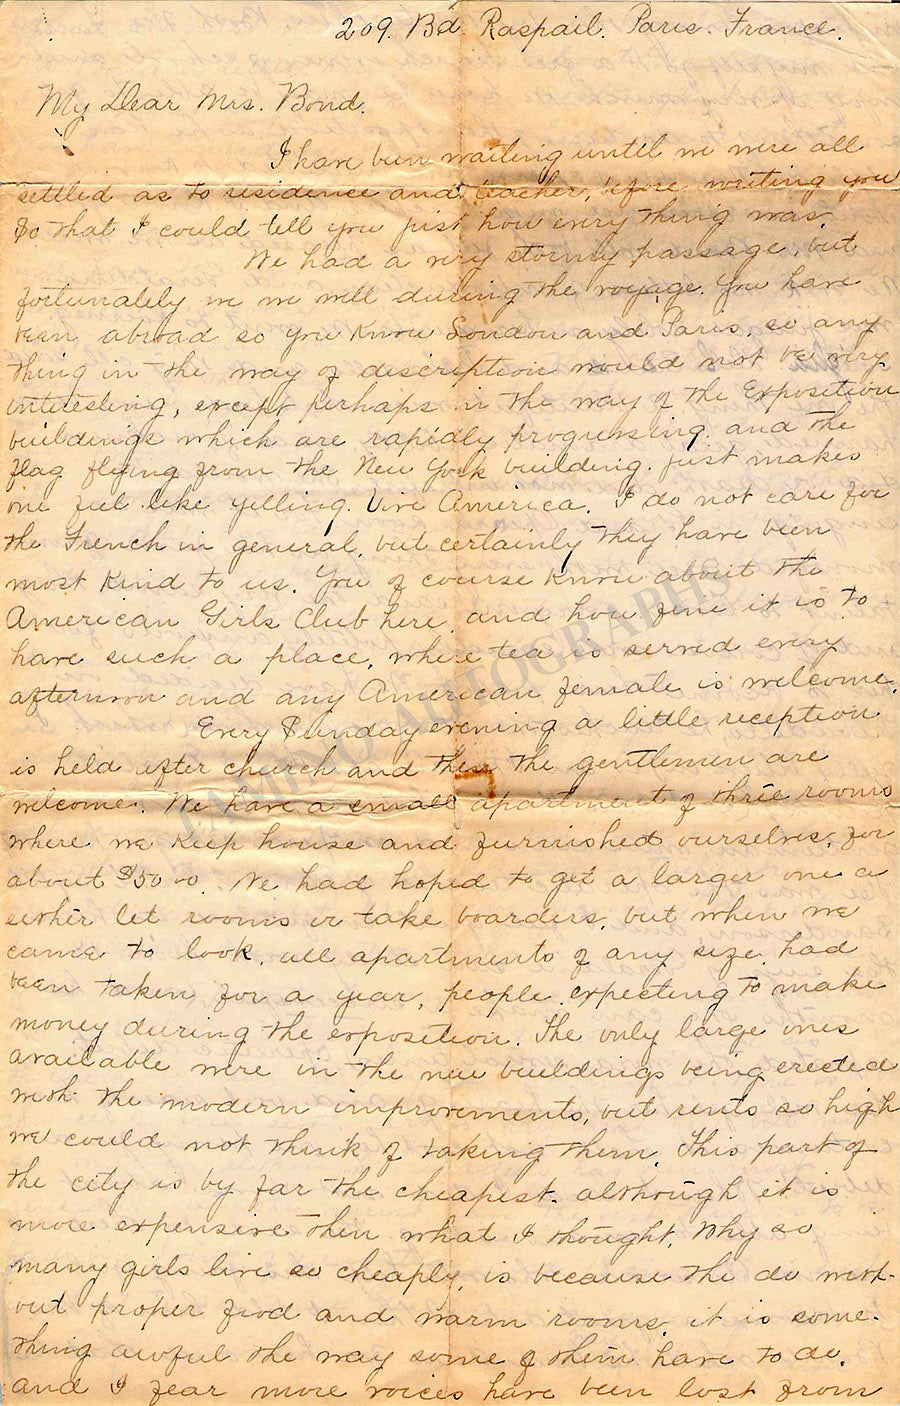 209. Bd. Raspail. Paris. France.
My Dear Mrs. Bond.
I have been waiting until we were all
settled as to residence and teacher, before writing you
so that I could tell you just how every thing was
We had a very stormy passage, but
fortunately we we well during the voyage. You have
been abroad so you know London and Paris. so any
thing in the way of discription would not be very
interesting, except perhaps in the way of the Exposition
buildings which are rapidly progressing. and the
flag flying from the New York building. just makes
one feel like yelling. Vive America. I do not care for
the French in general, but certainly they have been
most kind to us. You of course know about the
American Girls Club here, and how fine it is to
have such a place, where tea is served every
afternoon and any American female is welcome.
Every Sunday evening a little reception
is held after church and then the gentlemen are
welcome. We have a small apartment of three rooms
where we keep house and furnished ourselves, for
about $50.00. We had hoped to get a larger one a
either let rooms or take boarders, but when we
came to look, all apartments of any size, had
been taken for a year, people expecting to make
money during the exposition. The only large ones
available were in the new buildings being erected
with the modern improvements, but rents so high
we could not think of taking them. This part of
the city is by far the cheapest. although it is
more expensive then what I thought. Why so
many girls live so cheaply, is because the do with-
out proper food and warm rooms. it is some-
thing awful the way some of them have to do.
and I fear more voices have been lost from
TAMINO AUTOGRAPHS